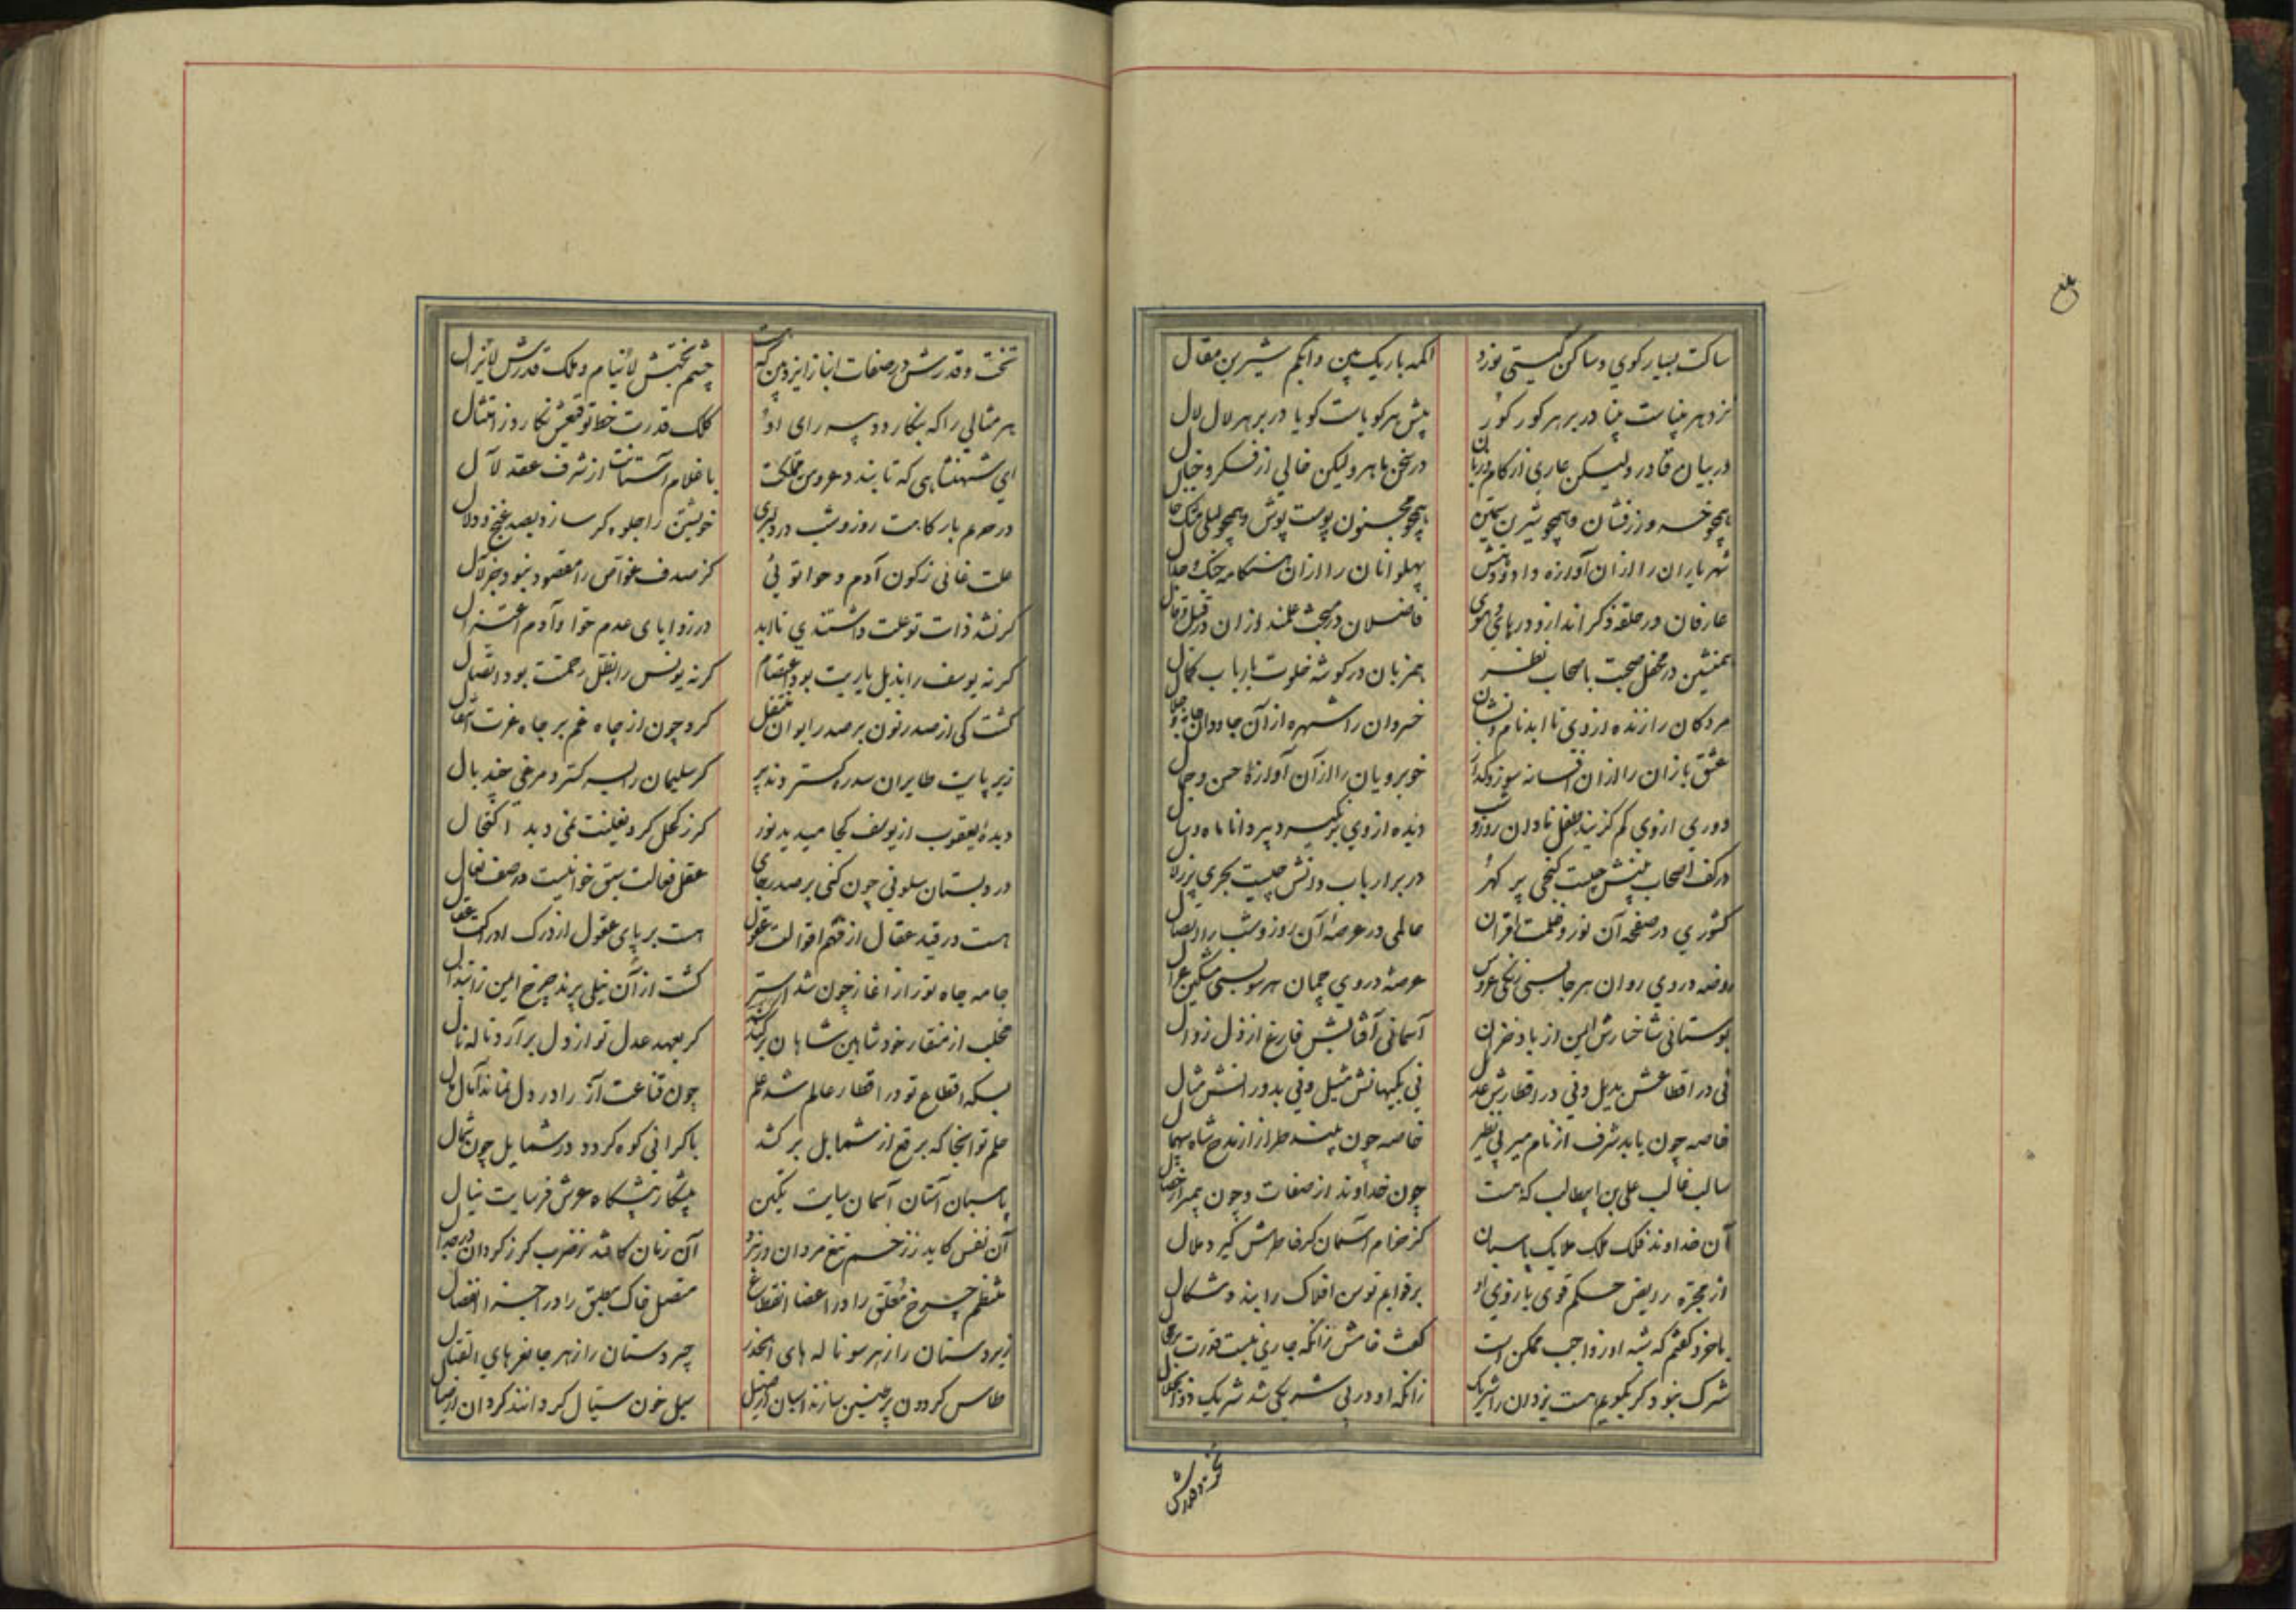 ساکت بسیار کوی و ساکن گیتی نورد
اکمه باریک بین و ابکم شیرین مقال
نزد هر بیناست بینا در بر هر کور کور
پیش هر کویاست کویا در بر هر لال لال
در بیان قادر ولیکن عاری از کام و زبان
در سخن ماهر ولیکن خالی از فکر و خیال
همچو خسرو زرفشان و همچو شیرین
همچو مجنون پوست پوش و همچو لیلی مشک خال
شهریاران را از آن آوازه داد و دهش
پهلوانان را از آن هنکامه جنک و جدال
عارفان در حلقه ذکر اندازو در های و هوی
فاضلان در مبحث علمند ازان در قیل و قال
همنشین در محفل صحبت باصحاب نظر
همزبان در کوشه خلوت بارباب کمال
مردکان را زنده از وی تا ابد نام و نشان
خسروان را شهره از آن جاودان جاه و جلال
عشق بازان را ازان افسانه سوز و کداز
خوبرویان را از آن آوازهٔ حسن و جمال
دوری از وی کم کزیند طفل نادان روز و شب
دیده از وی بر نکیرد پیر دانا ماه و سال
در کف اصحاب بینش چیست کنجی پر کهر
در بر ارباب دانش چیست بحری پر زلال
کشوری در صفحه آن نور و ظلمت اقتران
عالمی در عرصه آن روز و شب را اتصال
روضه در وی روان هر جانبی زنکی عروس
عرصهٔ در وی چمان هر سو بسی مشکین غزال
بوستانی شاخسارش ایمن از باد خزان
آسمانی آفتابش فارغ از ذل زوال
نی در اقطاعش بدیل و نی در اقطارش عدیل
نی بکیهانش مثیل و نی بدورانش مثال
خاصه چون یابد شرف از نام میر بی نظیر
خاصه چون بندد طراز از مدح شاه بیهمال
سالب غالب علی بن ابیطالب که هست
چون خداوند از صفات و چون پیمبر از خصال
آن خداوند فلک ملک ملایک پاسبان
کز خرام آسمان کر خاطرش کیرد ملال
از مجره رایض حکم قوی بازوی او
بر قوایم توسن افلاک را بندد شکال
با خرد کفتم که شبه او ز واجب ممکن است
کفت خامش زانکه جاری نیست قدرت بر محال
شرک نبود کر بکویم هست یزدان را شریک
زانکه او در بی شریکی شد شریک ذوالجلال
تخت و قدرش
تخت و قدرش در صفات انباز ایزد بین که هست
چشم بختش لاینام و ملک قدرش لایزال
هر مثالی را که بنکارد دبیر رای او
کلک قدرت خط توقیعش نکارد ز امتثال
ای شهنشاهی که تا بندد عروس مملکت
با غلام آستانت از شرف عقد لآل
در حرم بارکاهت روز و شب در دلبری
خویشتن را جلوه کر سازد بصد غنج و دلال
علت غائی ز کون آدم و حوا توئی
کز صدف غواص را مقصود نبود جز لآل
کر نشد ذات تو علت داشتندی تا ابد
در زوایای عدم حوا و آدم اعتزال
کر نه یوسف را بذیل یاریت بود اعتصام
کر نه یونس را بظل رحمتت بود اتصال
کشت کی از صدر نون بر صدر ایوان منتقل
کرد چون از چاه غم بر جاه عزت انتقال
زیر پایت طایران سدره کستردند پر
کر سلیمان را بسر کسترد مرغی چند بال
دیدهٔ یعقوب از یوسف کجا میدید نور
کر ز کحل کرد نعلینت نمی دید اکتحال
در دبستان سلونی چون کنی بر صدر جای
عقل فعالت سبق خوانیست در صف نعال
هست در قید عقال از فهم اقوالت عقول
هست بر پای عقول از درک ادراکت عقال
جامه جاه تو را ز آغاز چون شد آستر
کشت از آن نیلی پرند چرخ ایمن ز ابتذال
مخلب از منقار خود شاهین شاهان برکند
کر بعهد عدل تو از دل برآرد ناله نال
بسکه اقطاع تو در اقطار عالم شد علم
چون قناعت آز را در دل نماند آمال مال
حلم تو آنجا که برقع از شمایل برکشد
با کرانی کوه کردد در شمایل چون شمال
پاسبان آستان آسمان سایت تکین
پیشکار پیشکاه عرش فرسایت نیال
آن نفس کاید ز زخم تیغ مردان در نبرد
آن زمان کافتد ز ضرب کرز کردان در جدال
منتظم چرخ معلق را در اعضا انقطاع
متصل خاک مطبق را در اجزا انفصال
زیردستان را ز هر سو ناله های الحذر
چیردستان را ز هر جا نعرهای القتال
طاس کردون پر طنین سازند اسبان از صهیل
سیل خون سیال کردانند کردان از